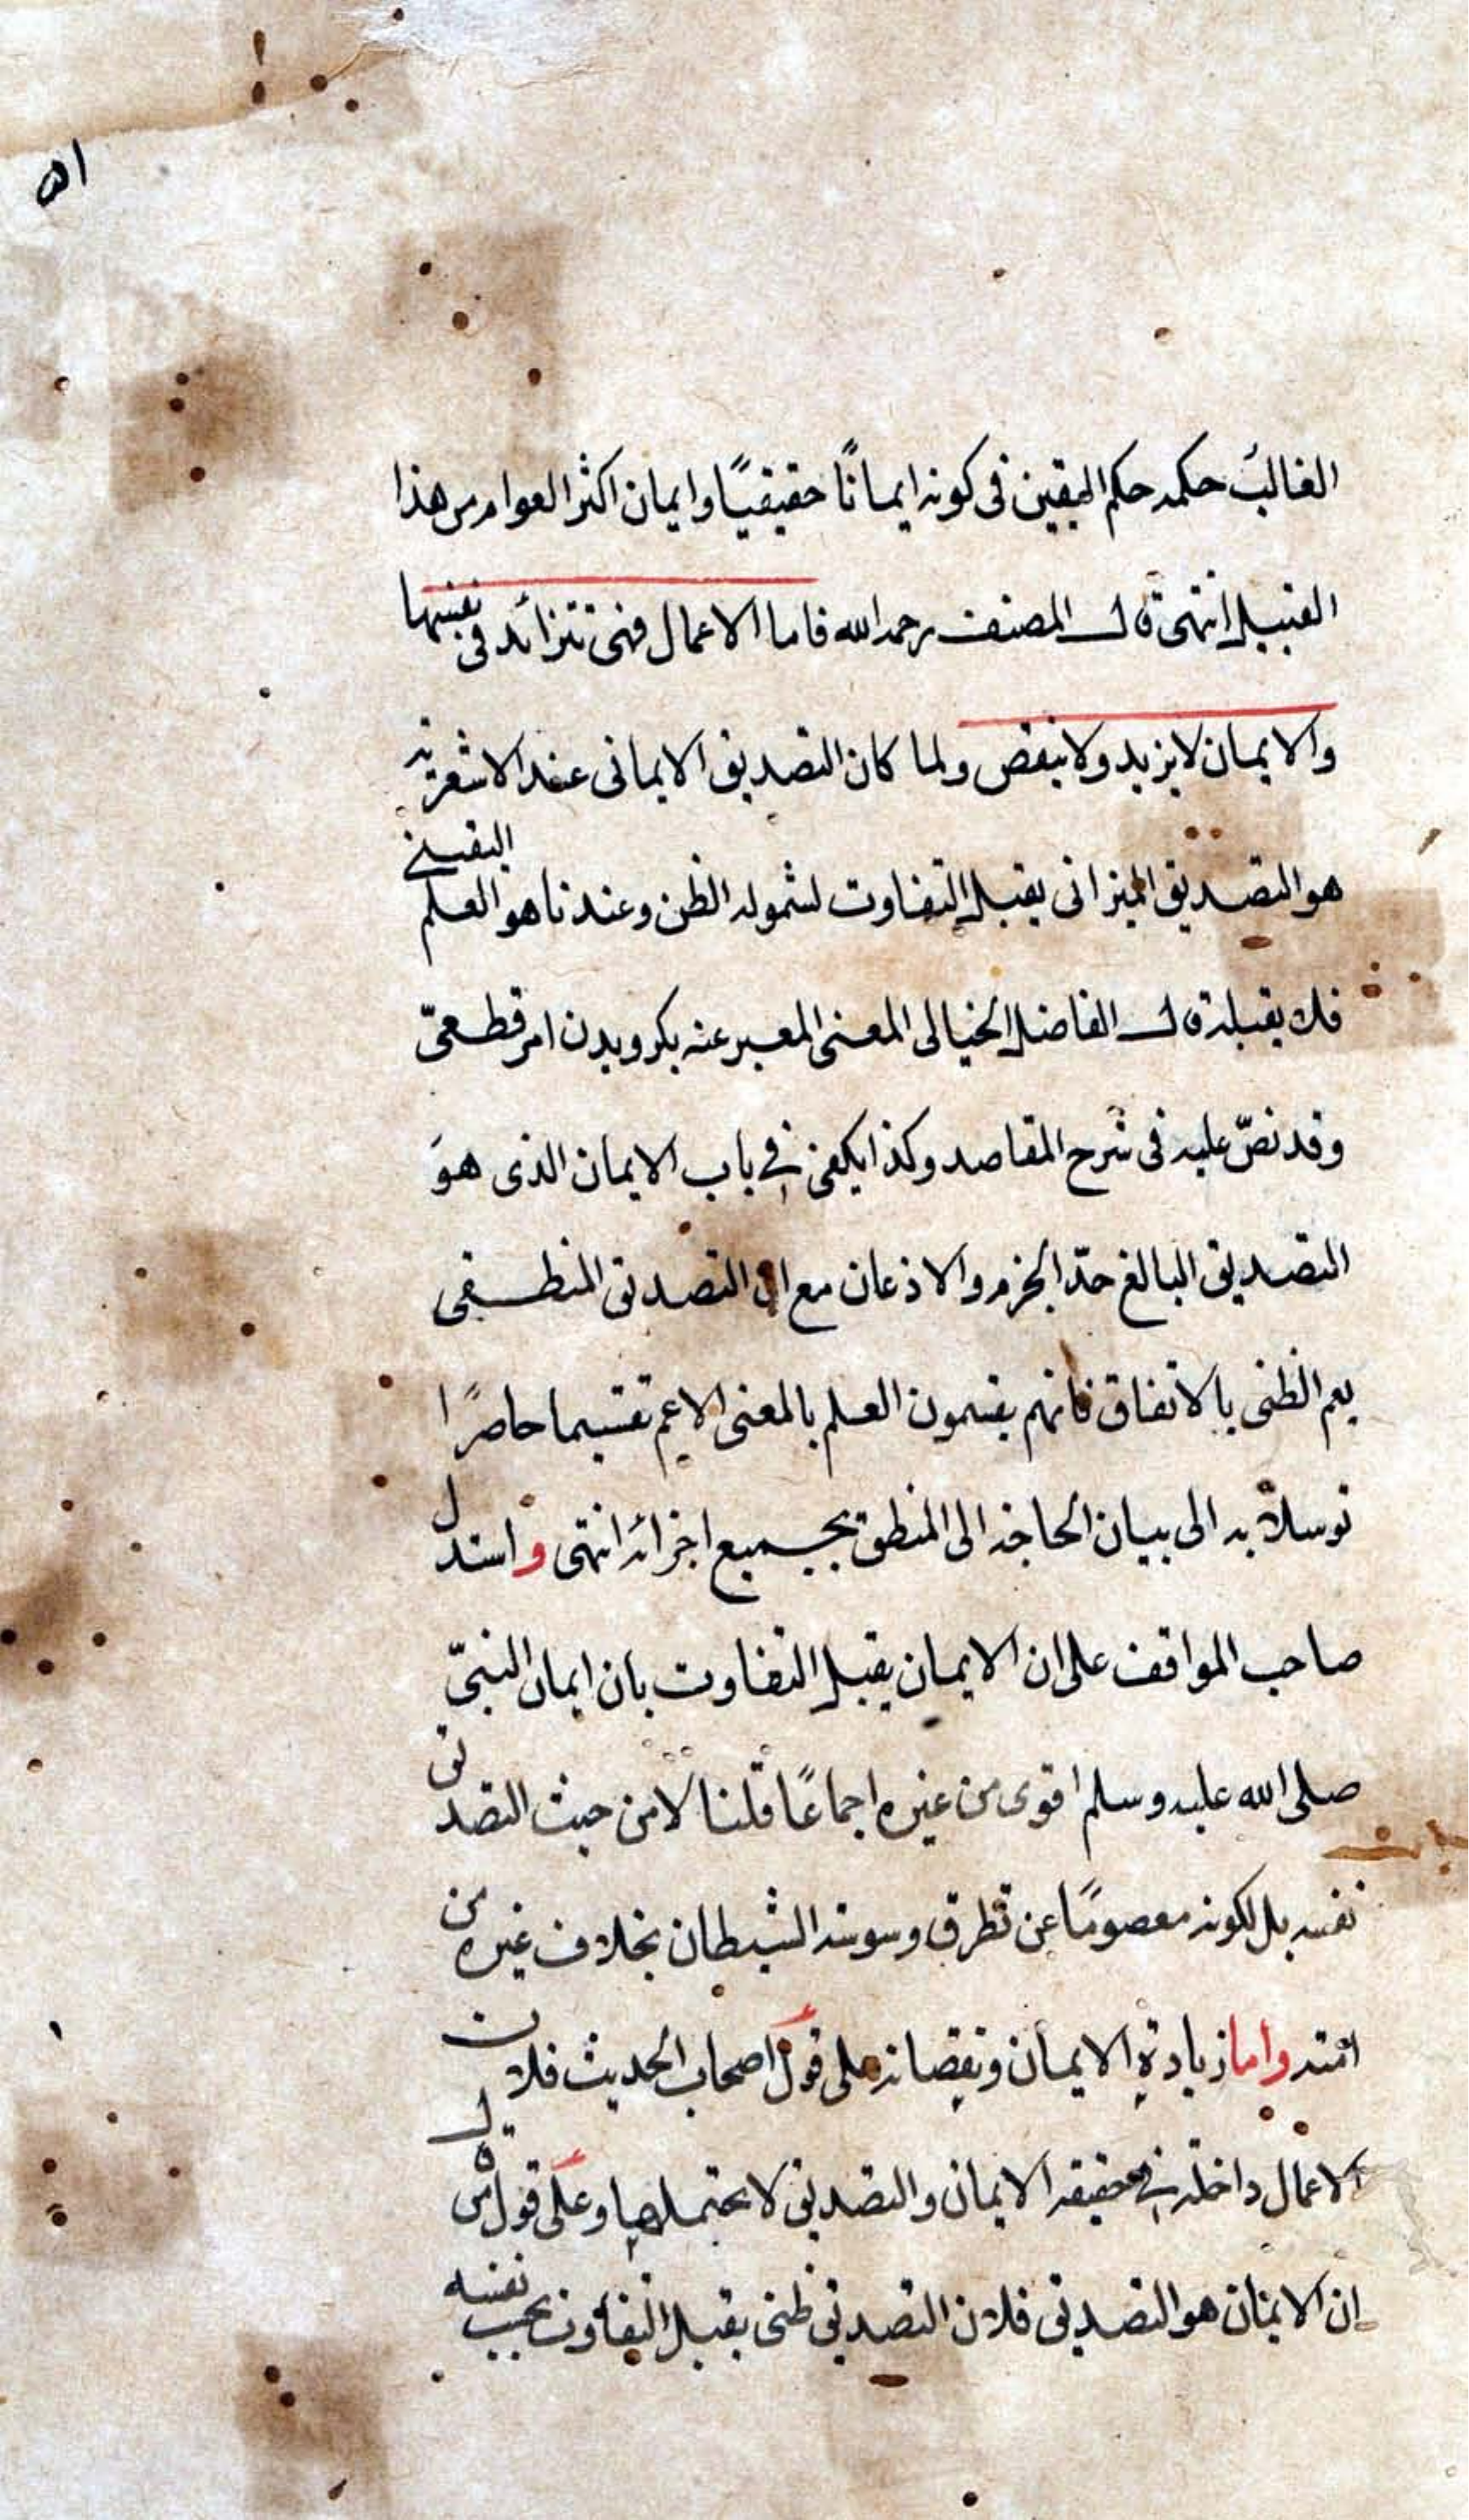 الغالب حكمه حكم اليقين فى كونه ايمانًا حقيقيًا وايمان اكثر العوام من هذا
القبيل انتهى قال المصنف رحمه الله فاما الاعمال فهى تتزائد فى نفسها
والايمان لا يزيد ولا ينقص ولما كان التصديق الايمانى عند الاشعرية
هو التصديق الميزانى يقبل التفاوت لشموله الظن وعندنا هو العلم اليقينے
فلا يقبله قال الفاضل الخيالى المعنى المعبر عنه بكرويدن امر قطعىّ
وقد نصّ عليه فى شرح المقاصد وكذا يكفى فے باب الايمان الذى هوَ
التصديق البالغ حدّ الجزم والاذعان مع ان التصديق المنطقى
يعم الظنى بالاتفاق فانهم يقسمون العلم بالمعنى الاعم تقسيما حاصرًا
توسلاً به الى بيان الحاجة الى المنطق بجميع اجزائه انتهى واستدل
صاحب المواقف على ان الايمان يقبل التفاوت بان ايمان النبىّ
صلى الله عليه وسلم اقوى من غيره اجماعًا قلنا لا من حيث التصديق
نفسه بل لكونه معصومًا عن تطرق وسوسة الشيطان بخلاف غيره من
امته واما زيادة الايمان ونقصانه على قول اصحاب الحديث فلان
الاعمال داخلة فے حقيقة الايمان والتصديق لا يحتملها وعلى قول من قال
ان الايمان هو التصديق فلان التصديق ظنى يقبل التفاوت بحسب نفسه